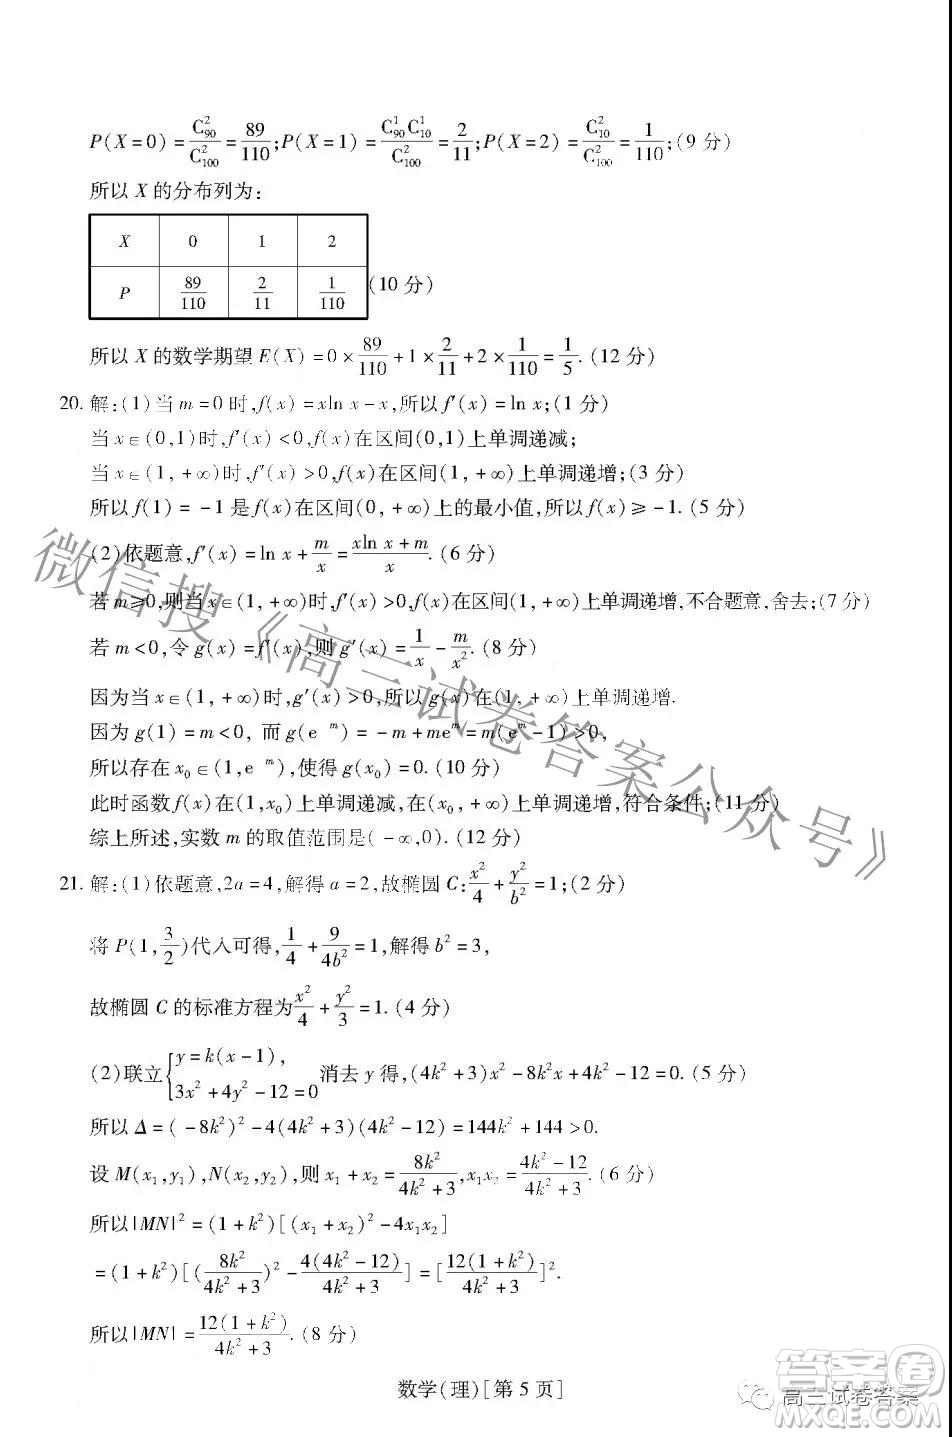 P(X=0)=C²₉₀/C²₁₀₀=89/110;P(X=1)=C¹₉₀C¹₁₀/C²₁₀₀=2/11;P(X=2)=C²₁₀/C²₁₀₀=1/110;(9 分)
所以 X 的分布列为:
X 0 1 2
P 89/110 2/11 1/110 (10 分)
所以 X 的数学期望 E(X)=0×89/110+1×2/11+2×1/110=1/5. (12 分)
20. 解:(1)当 m=0 时,f(x)=xln x-x,所以 f′(x)=ln x;(1 分)
当 x∈(0,1)时,f′(x)<0,f(x)在区间(0,1)上单调递减;
当 x∈(1,+∞)时,f′(x)>0,f(x)在区间(1,+∞)上单调递增;(3 分)
所以 f(1)=-1 是 f(x)在区间(0,+∞)上的最小值,所以 f(x)≥-1. (5 分)
(2)依题意,f′(x)=ln x+m/x=(xln x+m)/x. (6 分)
若 m≥0,则当 x∈(1,+∞)时,f′(x)>0,f(x)在区间(1,+∞)上单调递增,不合题意,舍去;(7 分)
若 m<0,令 g(x)=f′(x),则 g′(x)=1/x-m/x². (8 分)
因为当 x∈(1,+∞)时,g′(x)>0,所以 g(x)在(1,+∞)上单调递增.
因为 g(1)=m<0, 而 g(e ᵐ)=-m+meᵐ=m(eᵐ-1)>0,
所以存在 x₀∈(1,e ᵐ),使得 g(x₀)=0. (10 分)
此时函数 f(x)在(1,x₀)上单调递减,在(x₀,+∞)上单调递增,符合条件;(11 分)
综上所述,实数 m 的取值范围是(-∞,0). (12 分)
21. 解:(1)依题意,2a=4,解得 a=2,故椭圆 C:x²/4+y²/b²=1;(2 分)
将 P(1,3/2)代入可得,1/4+9/4b²=1,解得 b²=3,
故椭圆 C 的标准方程为x²/4+y²/3=1. (4 分)
(2)联立{y=k(x-1), 3x²+4y²-12=0 消去 y 得,(4k²+3)x²-8k²x+4k²-12=0. (5 分)
所以 Δ=(-8k²)²-4(4k²+3)(4k²-12)=144k²+144>0.
设 M(x₁,y₁),N(x₂,y₂),则 x₁+x₂=8k²/(4k²+3),x₁x₂=(4k²-12)/(4k²+3). (6 分)
所以|MN|²=(1+k²)[(x₁+x₂)²-4x₁x₂]
=(1+k²)[(8k²/(4k²+3))²-4(4k²-12)/(4k²+3)]=[12(1+k²)/(4k²+3)]².
所以|MN|=12(1+k²)/(4k²+3). (8 分)
数学(理)[第 5 页]
微信搜《高三试卷答案公众号》
高三试卷答案
答案卷
MXQE.COM